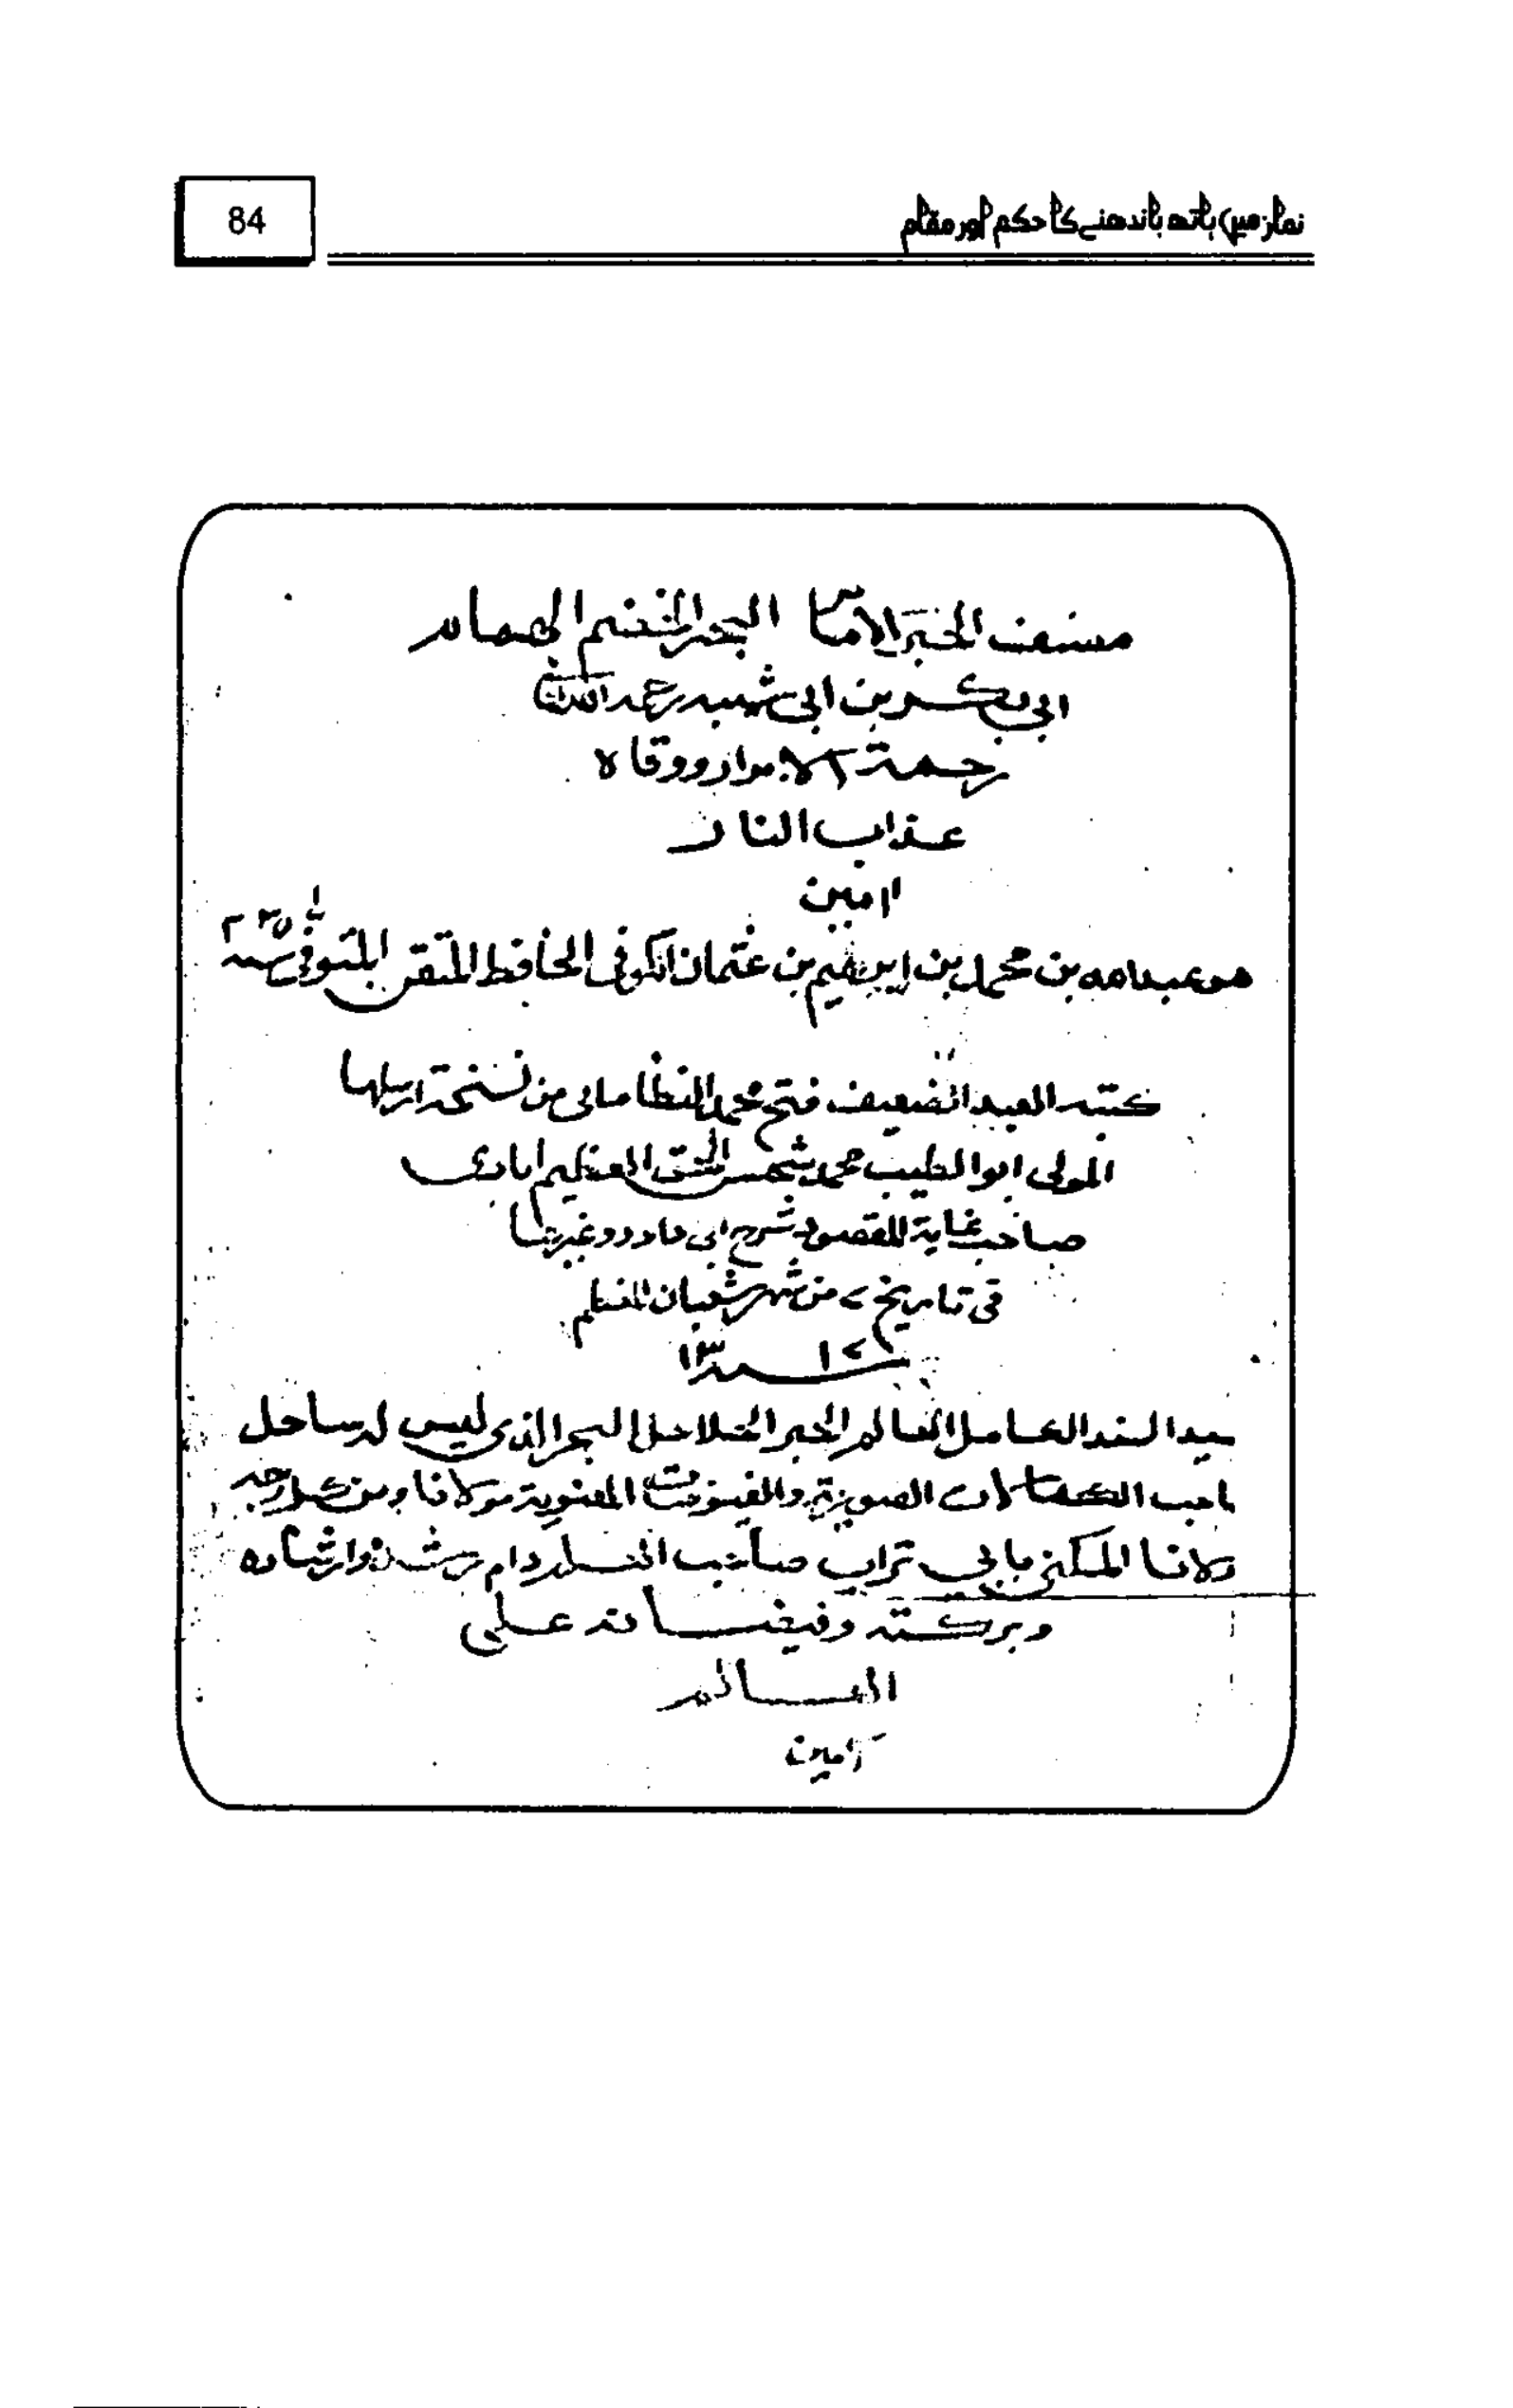 84
نماز میں ہاتھ باندھنے کا حکم اور مقام
مصنف الحبر الامام البحر الخضم الهمام
ابی بکر بن ابی شیبه رحمه الله تعالی
رحمة الابرار ووقاه
عذاب النار
امین
هو عبدالله بن محمد بن ابراهیم بن عثمان الکوفی الحافظ المتقن المتوفی سنه ٢٣٥
کتبه العبد الضعیف فتح محمد النظامانی من نسخة ارسلها
المولی ابو الطیب محمد شمس الحق العظیم ابادی
صاحب غایة المقصود شرح ابی داود وغیرها
فی تاریخ ٧ من شهر شعبان المعظم
سید السند العامل العالم الحبر الحلاحل البحر الذی لیس له ساحل
احب الکمالات الصوریة والفیوضات المعنویة مولانا ومن کل وجه
ولانا المکنی بابی تراب صاحب دام رشده وارشاده
وبرکته وفیضانه علی
العالم
آمین